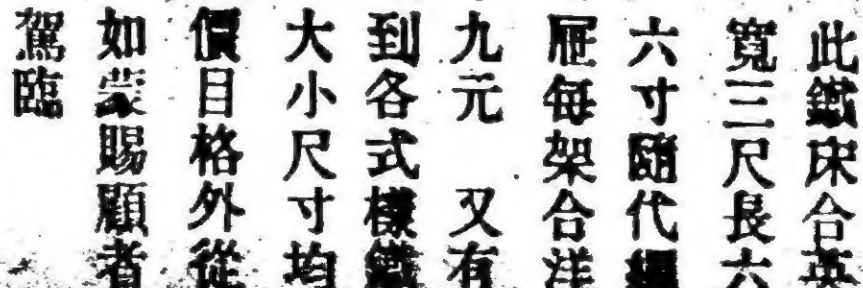 此鐵床合英
寬三尺長六
六寸隨代繃
屜每架合洋
九元 又有
到各式樣鐵
大小尺寸均
價目格外從
如蒙賜顧者
駕臨